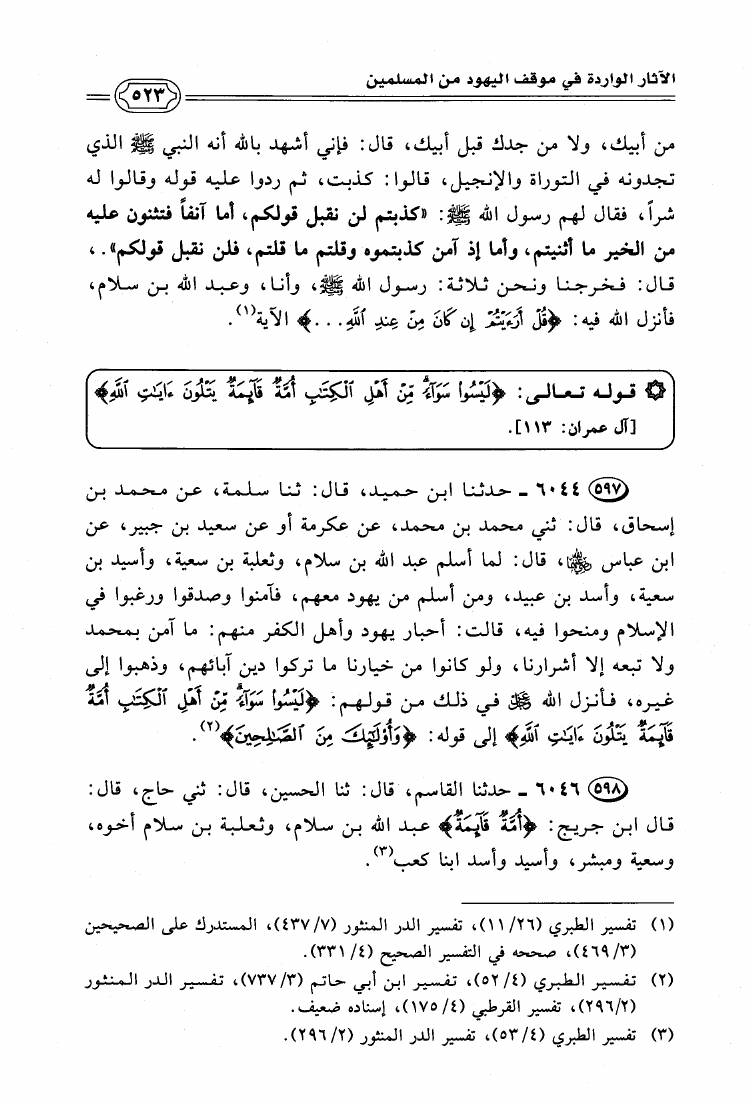 الآثار الواردة في موقف اليهود من المسلمين
٥٢٣
من أبيك، ولا من جدك قبل أبيك، قال: فإني أشهد بالله أنه النبي ﷺ الذي
تجدونه في التوراة والإنجيل، قالوا: كذبت، ثم ردوا عليه قوله وقالوا له
شراً، فقال لهم رسول الله ﷺ: «كذبتم لن نقبل قولكم، أما آنفاً فتثنون عليه
من الخير ما أثنيتم، وأما إذ آمن كذبتموه وقلتم ما قلتم، فلن نقبل قولكم».،
قال: فخرجنا ونحن ثلاثة: رسول الله ﷺ، وأنا، وعبد الله بن سلام،
فأنزل الله فيه: ﴿قُلْ أَرَءَيْتُمْ إِن كَانَ مِنْ عِندِ ٱللَّهِ...﴾ الآية(١).
قوله تعالى: ﴿لَيْسُوا۟ سَوَآءً ۗ مِّنْ أَهْلِ ٱلْكِتَٰبِ أُمَّةٌ قَآئِمَةٌ يَتْلُونَ ءَايَٰتِ ٱللَّهِ﴾
[آل عمران: ١١٣].
٥٩٧ ٦٠٤٤ - حدثنا ابن حميد، قال: ثنا سلمة، عن محمد بن
إسحاق، قال: ثني محمد بن محمد، عن عكرمة أو عن سعيد بن جبير، عن
ابن عباس رضي الله عنهما، قال: لما أسلم عبد الله بن سلام، وثعلبة بن سعية، وأسيد بن
سعية، وأسد بن عبيد، ومن أسلم من يهود معهم، فآمنوا وصدقوا ورغبوا في
الإسلام ومنحوا فيه، قالت: أحبار يهود وأهل الكفر منهم: ما آمن بمحمد
ولا تبعه إلا أشرارنا، ولو كانوا من خيارنا ما تركوا دين آبائهم، وذهبوا إلى
غيره، فأنزل الله في ذلك من قولهم: ﴿لَيْسُوا۟ سَوَآءً ۗ مِّنْ أَهْلِ ٱلْكِتَٰبِ أُمَّةٌ
قَآئِمَةٌ يَتْلُونَ ءَايَٰتِ ٱللَّهِ﴾ إلى قوله: ﴿وَأُو۟لَٰٓئِكَ مِنَ ٱلصَّٰلِحِينَ﴾(٢).
٥٩٨ ٦٠٤٦ - حدثنا القاسم، قال: ثنا الحسين، قال: ثني حاج، قال:
قال ابن جريج: ﴿أُمَّةٌ قَآئِمَةٌ﴾ عبد الله بن سلام، وثعلبة بن سلام أخوه،
وسعية ومبشر، وأسيد وأسد ابنا كعب(٣).
(١) تفسير الطبري (١١/٢٦)، تفسير الدر المنثور (٤٣٧/٧)، المستدرك على الصحيحين
(٤٦٩/٣)، صححه في التفسير الصحيح (٣٣١/٤).
(٢) تفسير الطبري (٥٢/٤)، تفسير ابن أبي حاتم (٧٣٧/٣)، تفسير الدر المنثور
(٢٩٦/٢)، تفسير القرطبي (١٧٥/٤)، إسناده ضعيف.
(٣) تفسير الطبري (٥٣/٤)، تفسير الدر المنثور (٢٩٦/٢).